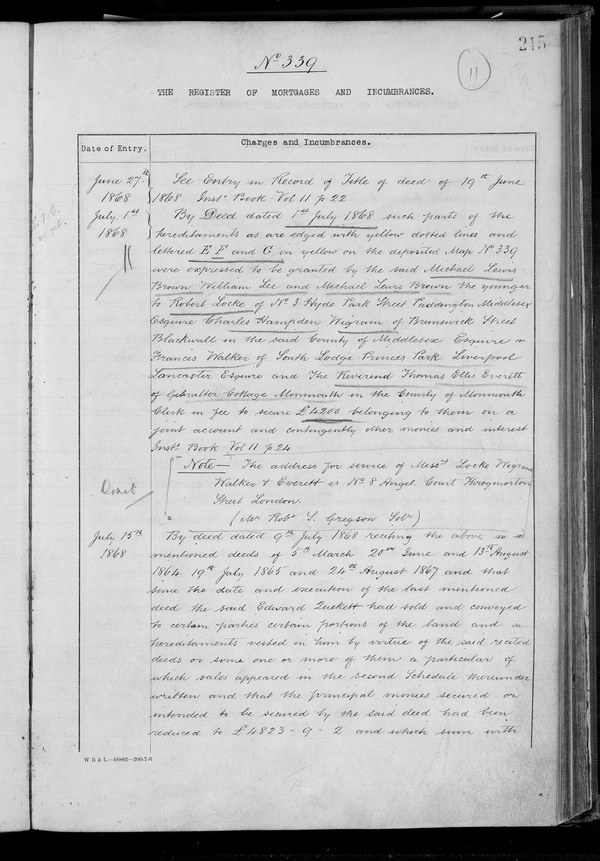 215
No 339
11
THE REGISTER OF MORTGAGES AND INCUMBRANCES.
Date of Entry.
Charges and Incumbrances.
June 27th
1868
See Entry in Record of Title of deed of 19th June
1868 Inst. Book Vol 11 p 22
July. 1st
1868
By Deed dated 1st July 1868 such parts of the
hereditaments as are edged with yellow dotted lines and
lettered E F and G in yellow on the deposited Map No 339
were expressed to be granted by the said Michael Lewis
Brown William Lee and Michael Lewis Brown the younger
to Robert Locke of No 3 Hyde Park Street Paddington Middlesex
Esquire Charles Hampden Wigram of Brunswick Street
Blackwall in the said County of Middlesex Esquire
Frances Walker of South Lodge Princes Park Liverpool
Lancaster Esquire and The Reverend Thomas Ellis Everett
of Gibralter Cottage Monmouth in the County of Monmouth
Clerk in fee to secure £4200 belonging to them on a
joint account and contingently other monies and interest
Inst. Book Vol 11 p 24
Note— The address for service of Messrs Locke Wigram
Walker & Everett is No 8 Angel Court Throgmorton
Street London
(Mr Robt S. Gregson Solr)
Omit
July 15th
1868
By deed dated 9th July 1868 reciting the above
mentioned deeds of 5th March 20th June and 13th August
1864 19th July 1865 and 24th August 1867 and that
since the date and execution of the last mentioned
deed the said Edward Quckett had sold and conveyed
to certain parties certain portions of the land and
hereditaments vested in him by virtue of the said recited
deeds or some one or more of them a particular of
which sales appeared in the second Schedule thereunder
written and that the principal monies secured or
intended to be secured by the said deed had been
reduced to £4823-9-2 and which sum with